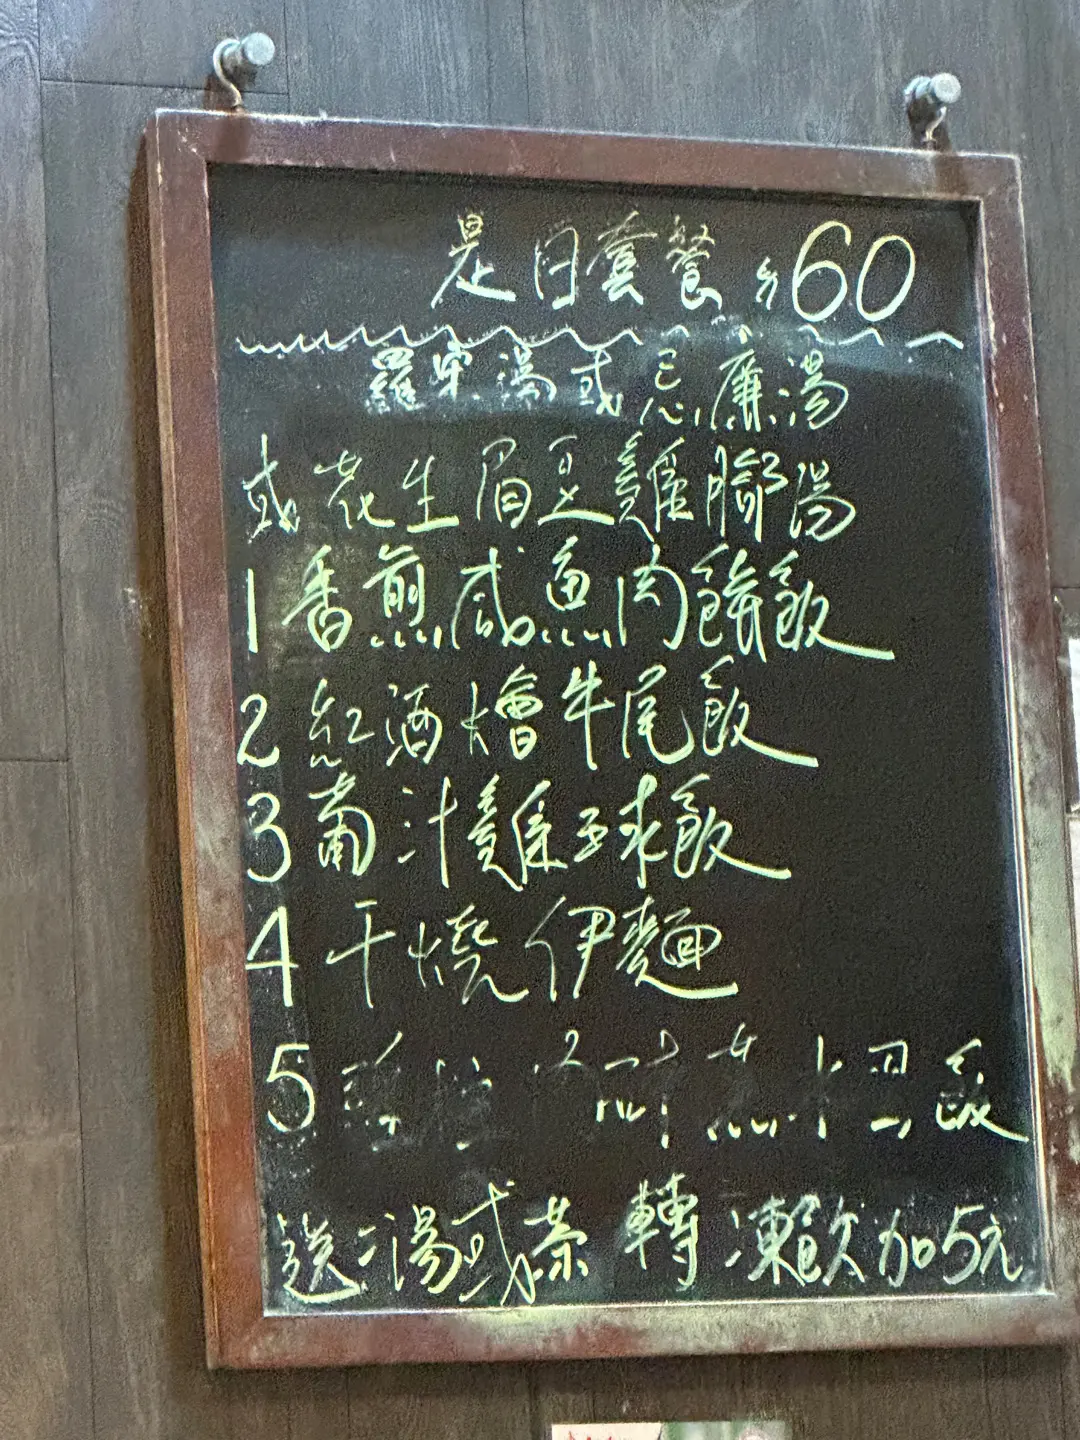 是日套餐 $60
羅宋湯或忌廉湯
或花生眉豆雞腳湯
1 香煎咸魚肉餅飯
2 紅酒燴牛尾飯
3 葡汁雞球飯
4 干燒伊麵
5 飯
送湯或茶 轉凍飲加5元